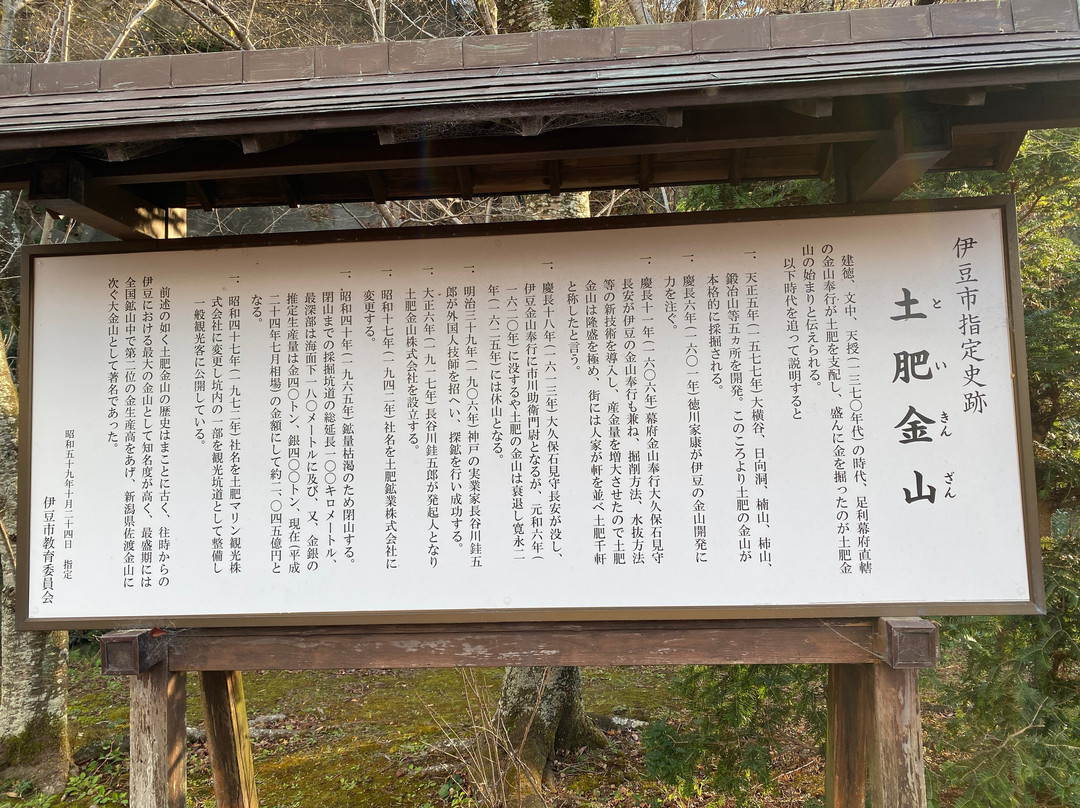 伊豆市指定史跡
土肥金山
といきんざん
建徳、文中、天授(一三七〇年代)の時代、足利幕府直轄
の金山奉行が土肥を支配し、盛んに金を掘ったのが土肥金
山の始まりと伝えられる。
以下時代を追って説明すると
一、天正五年(一五七七年)大横谷、日向洞、楠山、柿山、
鍛冶山等五ヵ所を開発。このころより土肥の金山が
本格的に採掘される。
一、慶長六年(一六〇一年)徳川家康が伊豆の金山開発に
力を注ぐ。
一、慶長十一年(一六〇六年)幕府金山奉行大久保石見守
長安が伊豆の金山奉行も兼ね、掘削方法、水抜方法
等の新技術を導入し、産金量を増大させたので土肥
金山は隆盛を極め、街には人家が軒を並べ土肥千軒
と称したと言う。
一、慶長十八年(一六一三年)大久保石見守長安が没し、
伊豆金山奉行に市川助衛門尉となるが、元和六年(
一六二〇年)に没するや土肥の金山は衰退し寛永二
年(一六二五年)には休山となる。
一、明治三十九年(一九〇六年)神戸の実業家長谷川銈五
郎が外国人技師を招へい、探鉱を行い成功する。
一、大正六年(一九一七年)長谷川銈五郎が発起人となり
土肥金山株式会社を設立する。
一、昭和十七年(一九四二年)社名を土肥鉱業株式会社に
変更する。
一、昭和四十年(一九六五年)鉱量枯渇のため閉山する。
閉山までの採掘坑道の総延長一〇〇キロメートル、
最深部は海面下一八〇メートルに及び、又、金銀の
推定生産量は金四〇トン、銀四〇〇トン、現在(平成
二十四年七月相場)の金額にして約二、〇四五億円と
なる。
一、昭和四十七年(一九七二年)社名を土肥マリン観光株
式会社に変更し坑内の一部を観光坑道として整備し
一般観光客に公開している。
前述の如く土肥金山の歴史はまことに古く、往時からの
伊豆における最大の金山として知名度が高く、最盛期には
全国鉱山中で第二位の金生産高をあげ、新潟県佐渡金山に
次ぐ大金山として著名であった。
昭和五十九年十月二十四日 指定
伊豆市教育委員会